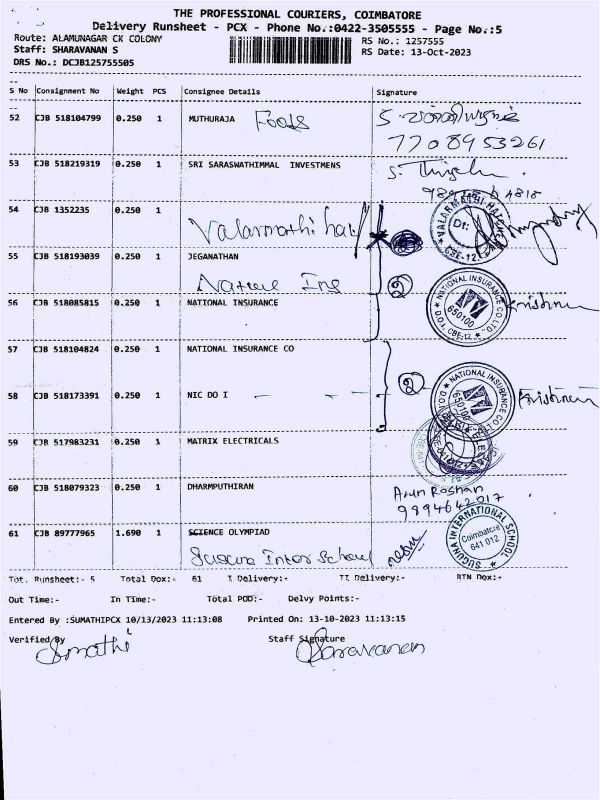 THE PROFESSIONAL COURIERS, COIMBATORE
Delivery Runsheet - PCX - Phone No.:0422-3505555 - Page No.:5
Route: ALAMUNAGAR CK COLONY
RS No.: 1257555
Staff: SHARAVANAN S
RS Date: 13-Oct-2023
DRS No.: DCJB125755505
S No Consignment No Weight PCS Consignee Details Signature
52 CJB 518104799 0.250 1 MUTHURAJA Foods
7708953261
53 CJB 518219319 0.250 1 SRI SARASWATHIMMAL INVESTMENS
54 CJB 1352235 0.250 1
Valarmathi hat
55 CJB 518193039 0.250 1 JEGANATHAN
Native Ing 2
56 CJB 518085815 0.250 1 NATIONAL INSURANCE
NATIONAL INSURANCE CO LTD. D.O.V, CBE-12. 650100 Krishnan
57 CJB 518104824 0.250 1 NATIONAL INSURANCE CO
2
58 CJB 518173391 0.250 1 NIC DO I - - -
NATIONAL INSURANCE CO LTD. 650100 Krishnan
59 CJB 517983231 0.250 1 MATRIX ELECTRICALS
60 CJB 518079323 0.250 1 DHARMPUTHIRAN
Arun Roshan
9894642017
61 CJB 89777965 1.690 1 SCIENCE OLYMPIAD
Suguna Inter School
SUGUNA INTERNATIONAL SCHOOL Coimbatore 641 012
Tot. Runsheet:- 5 Total Dox:- 61 I Delivery:- II Delivery:- RTN Dox:-
Out Time:- In Time:- Total POD:- Delvy Points:-
Entered By :SUMATHIPCX 10/13/2023 11:13:08 Printed On: 13-10-2023 11:13:15
Verified By Staff Signature
Sumathi Saravanan